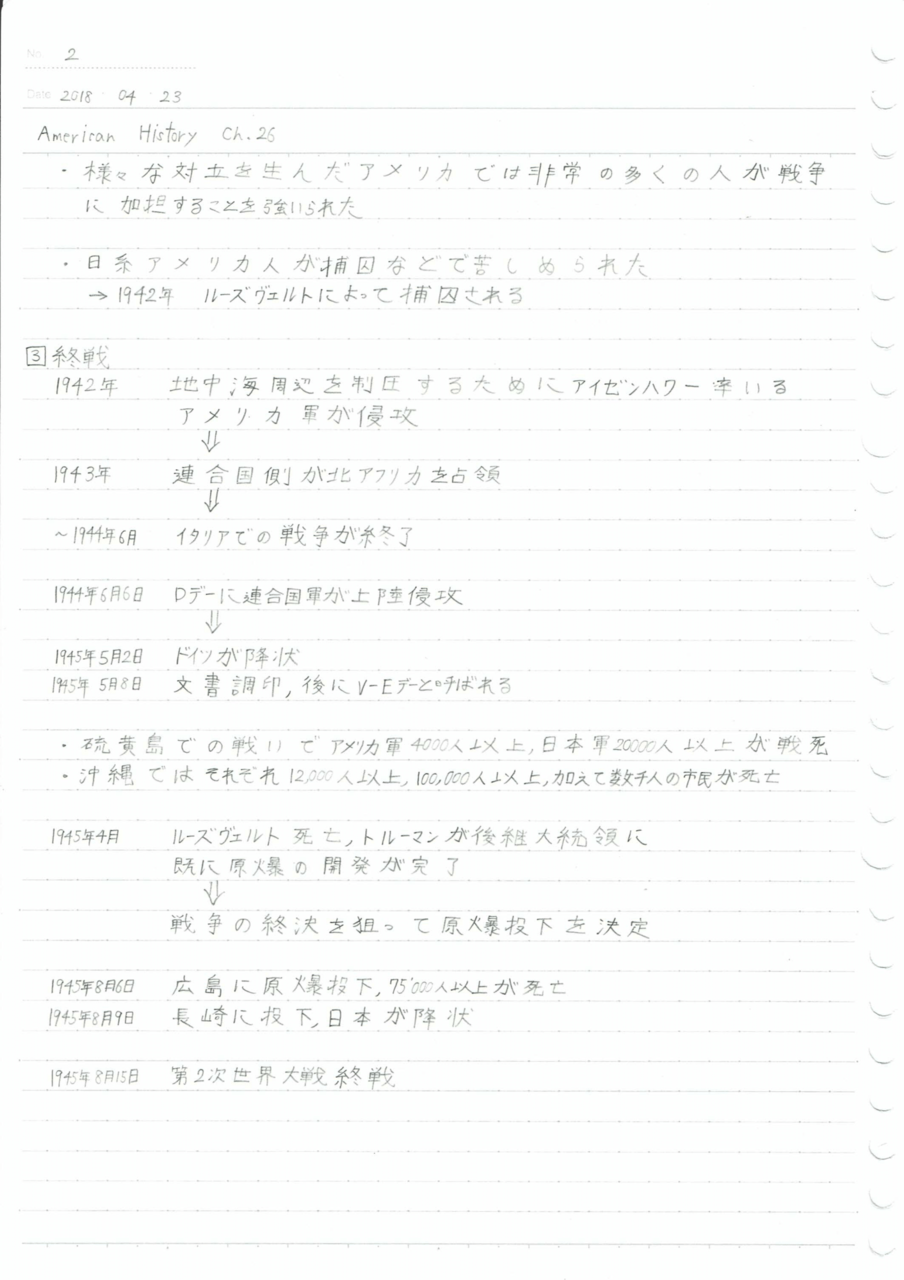 No. 2
Date 2018 04 23
American History Ch.26
・様々な対立を生んだアメリカでは非常の多くの人が戦争
に加担することを強いられた
・日系アメリカ人が捕囚などで苦しめられた
→1942年 ルーズヴェルトによって捕囚される
3 終戦
1942年 地中海周辺を制圧するためにアイゼンハワー率いる
アメリカ軍が侵攻
⇓
1943年 連合国側が北アフリカを占領
⇓
～1944年6月 イタリアでの戦争が終了
1944年6月6日 Dデーに連合国軍が上陸侵攻
⇓
1945年5月2日 ドイツが降状
1945年5月8日 文書調印,後にV-Eデーと呼ばれる
・硫黄島での戦いでアメリカ軍4000人以上,日本軍20000人以上が戦死
・沖縄ではそれぞれ12,000人以上,100,000人以上,加えて数千人の市民が死亡
1945年4月 ルーズヴェルト死亡,トルーマンが後継大統領に
既に原爆の開発が完了
⇓
戦争の終決を狙って原爆投下を決定
1945年8月6日 広島に原爆投下,75000人以上が死亡
1945年8月9日 長崎に投下,日本が降状
1945年8月15日 第2次世界大戦終戦